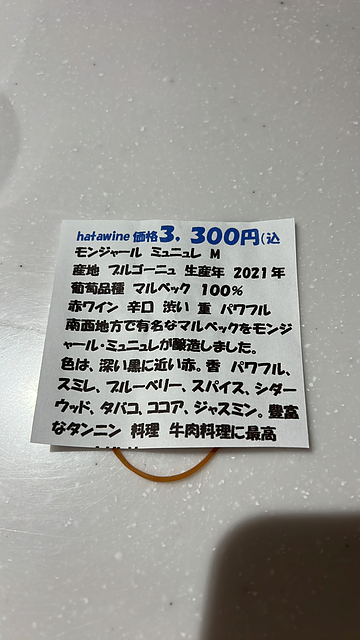 hatawine 価格3,300円(込
モンジャール ミュニュレ M
産地 ブルゴーニュ 生産年 2021年
葡萄品種 マルベック 100%
赤ワイン 辛口 渋い 重 パワフル
南西地方で有名なマルベックをモンジ
ャール・ミュニュレが醸造しました。
色は、深い黒に近い赤。香 パワフル、
スミレ、ブルーベリー、スパイス、シダー
ウッド、タバコ、ココア、ジャスミン。豊富
なタンニン 料理 牛肉料理に最高